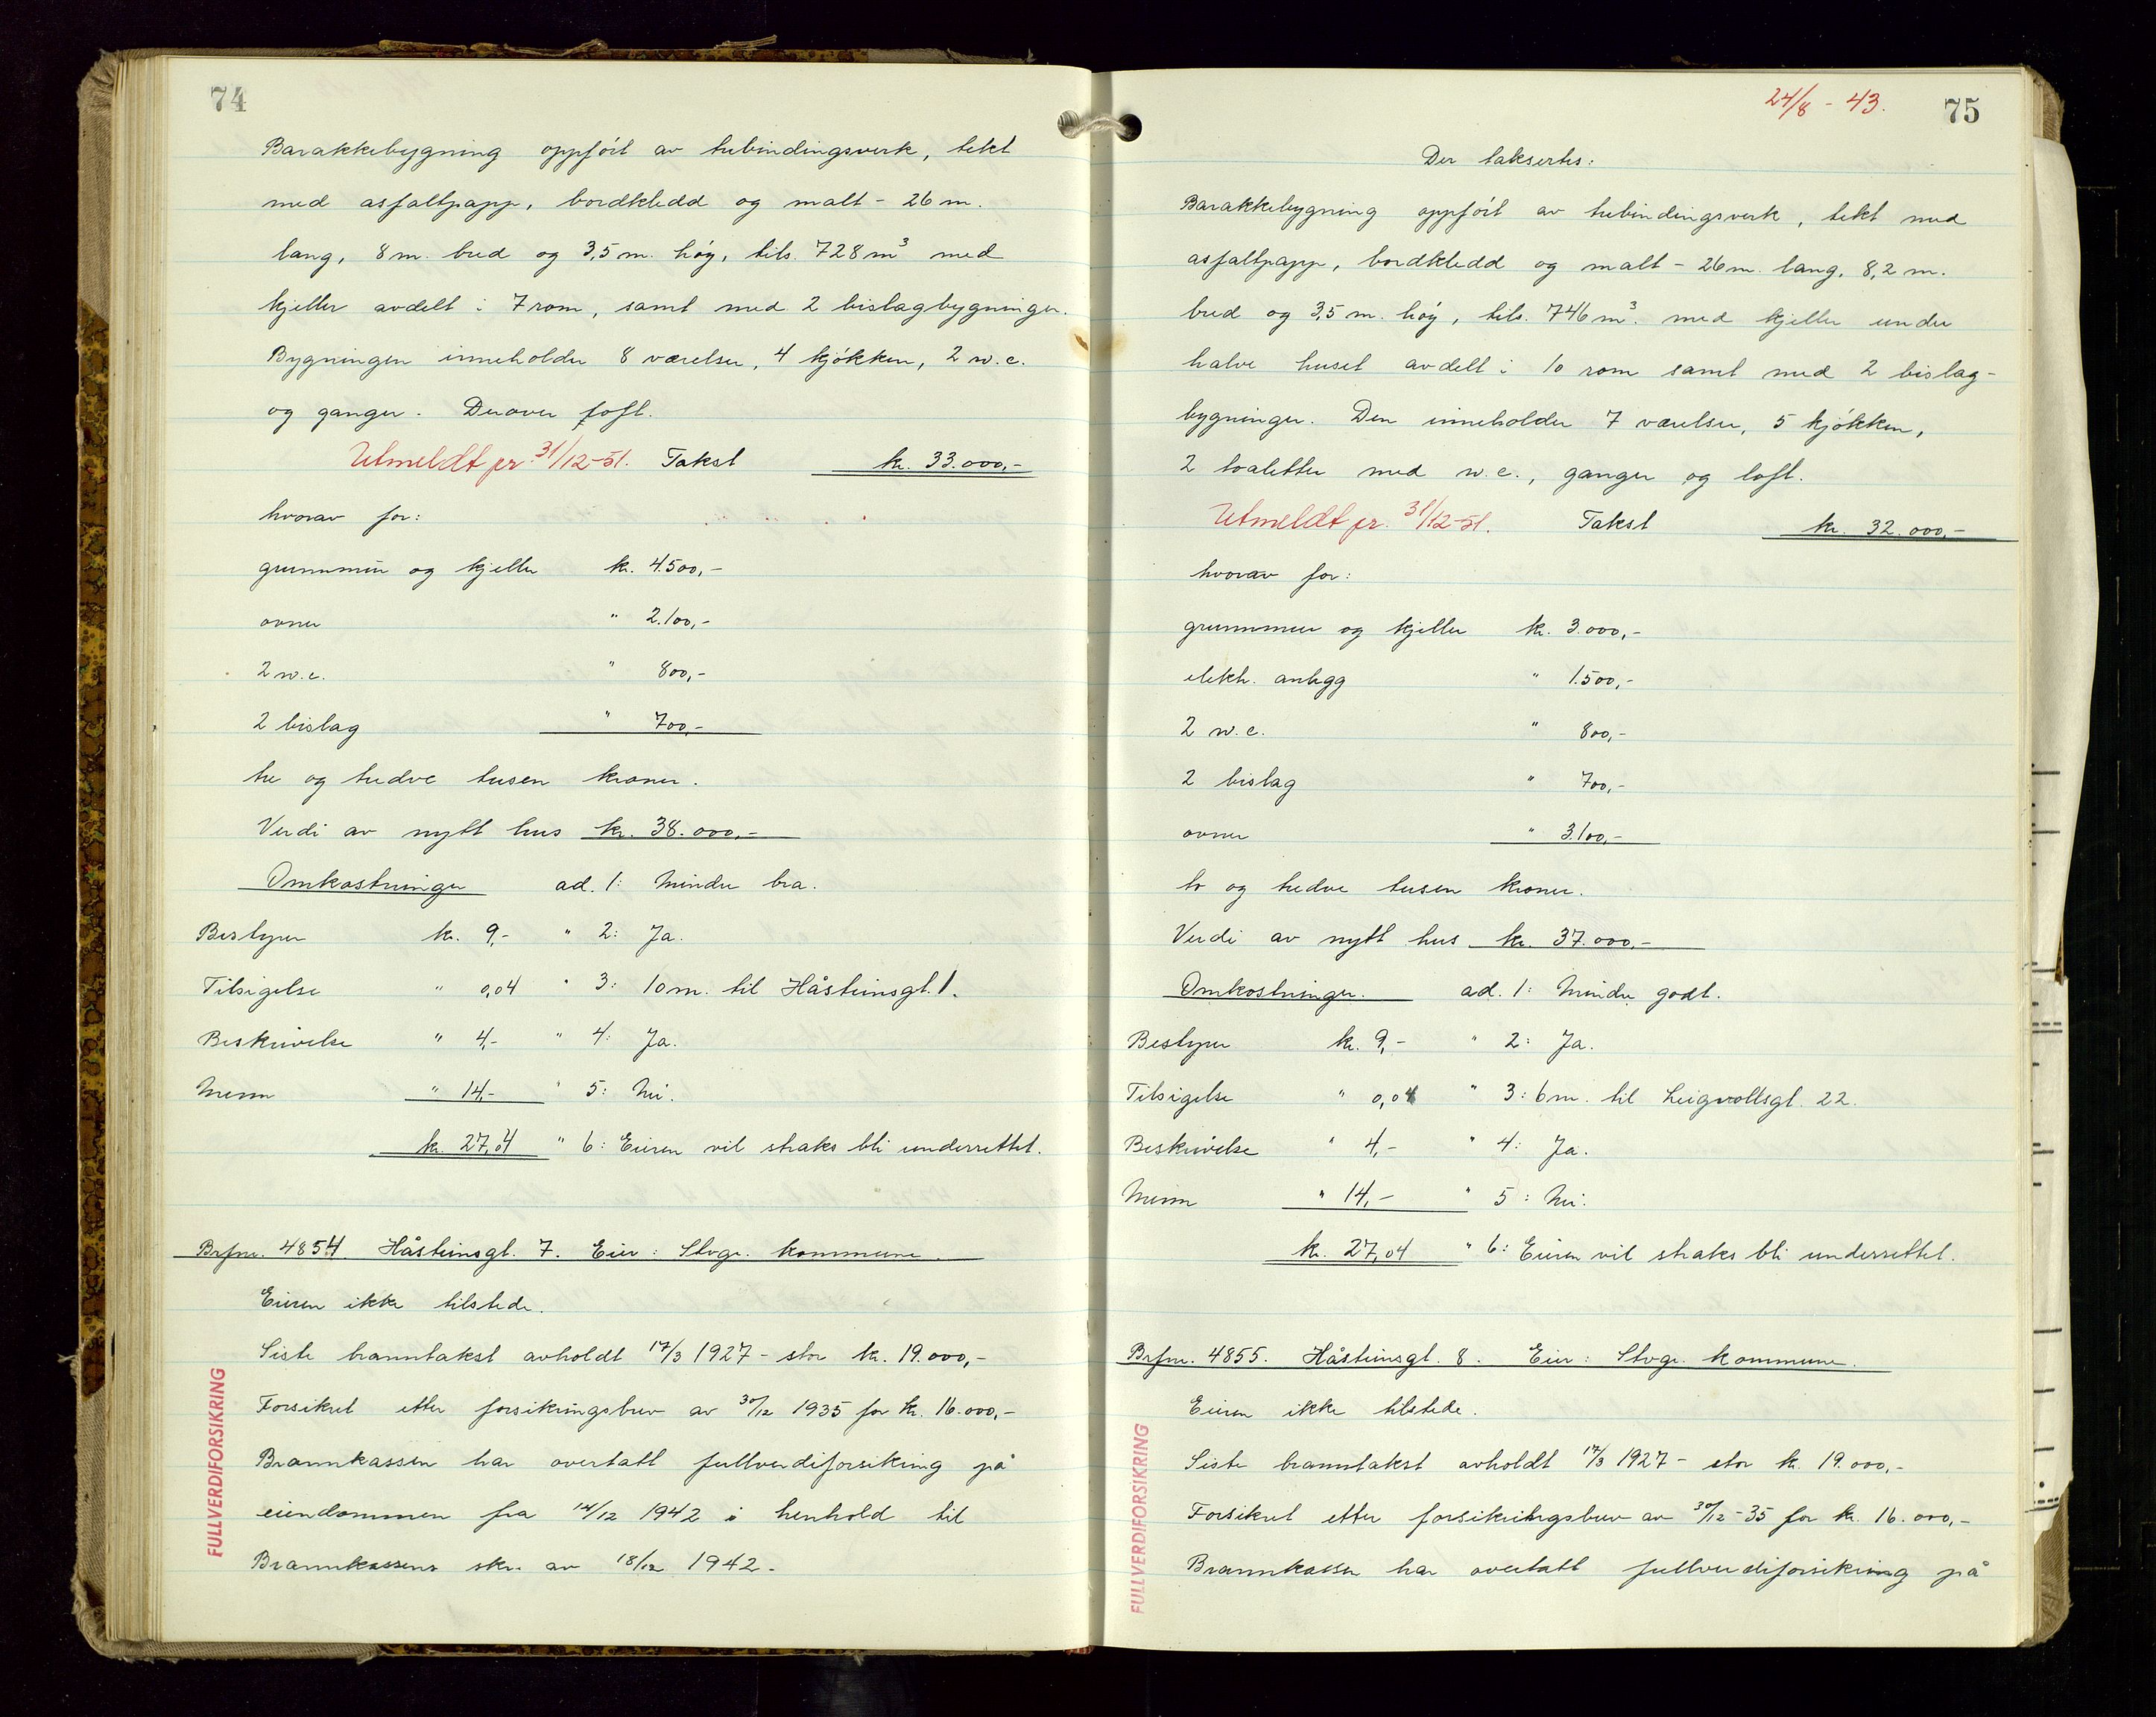 74
Barakkebygning oppført av trebindingsverk, tekt
med asfaltpapp, bordkledd og malt - 26 m.
lang, 8 m. bred og 3,5 m. høy, tils. 728 m³ med
kjeller avdelt i 7 rom, samt med 2 bislagbygninger.
Bygningen inneholder 8 værelser, 4 kjøkken, 2 w.c.
og ganger. Derover loft.
Utmeldt pr. 31/12-51. Takst kr. 33.000,-
hvorav for:
grunnmur og kjeller kr. 4.500,-
ovner " 2.100,-
2 w.c. " 800,-
2 bislag " 700,-
tre og tredve tusen kroner.
Verdi av nytt hus kr. 38.000,-
Omkostninger ad. 1: Mindre bra.
Bestyrer kr. 9,- " 2: Ja.
Tilsigelse " 0,04 " 3: 10 m. til Håsteinsgt. 1.
Beskrivelse " 4,- " 4: Ja.
Menn " 14,- " 5: Nei.
kr. 27,04 " 6: Eieren vil straks bli underrettet.
Brfnr. 4854. Håsteinsgt. 7. Eier: Stvgr. kommune.
Eieren ikke tilstede.
Siste branntakst avholdt 17/3 1927 - stor kr. 19.000,-
Forsikret etter forsikringsbrev av 30/12 1935 for kr. 16.000,-
Brannkassen har overtatt fullverdiforsikring på
eiendommen fra 14/12 1942 i henhold til
Brannkassens skr. av 18/12 1942.
FULLVERDIFORSIKRING
24/8 - 43.
75
Der taksertes:
Barakkebygning oppført av trebindingsverk, tekt med
asfaltpapp, bordkledd og malt - 26 m. lang, 8,2 m.
bred og 3,5 m. høy, tils. 746 m³. med kjeller under
halve huset avdelt i 10 rom samt med 2 bislag-
bygninger. Den inneholder 7 værelser, 5 kjøkken,
2 toaletter med w.c., ganger og loft.
Utmeldt pr. 31/12-51. Takst kr. 32.000,-
hvorav for:
grunnmur og kjeller kr. 3.000,-
elektr. anlegg " 1.500,-
2 w.c. " 800,-
2 bislag " 700,-
ovner " 3.100,-
to og tredve tusen kroner.
Verdi av nytt hus kr. 37.000,-
Omkostninger. ad. 1: Mindre godt.
Bestyrer kr. 9,- " 2: Ja.
Tilsigelse " 0,04 " 3: 6 m. til Leigvollsgt. 22.
Beskrivelse " 4,- " 4: Ja.
Menn " 14,- " 5: Nei.
kr. 27,04 " 6: Eieren vil straks bli underrettet.
Brfnr. 4855. Håsteinsgt. 8. Eier: Stvgr. kommune.
Eieren ikke tilstede.
Siste branntakst avholdt 17/3 1927 - stor kr. 19.000,-
Forsikret etter forsikringsbrev av 30/12-35 for kr. 16.000,-
Brannkassen har overtatt fullverdiforsikring på
FULLVERDIFORSIKRING